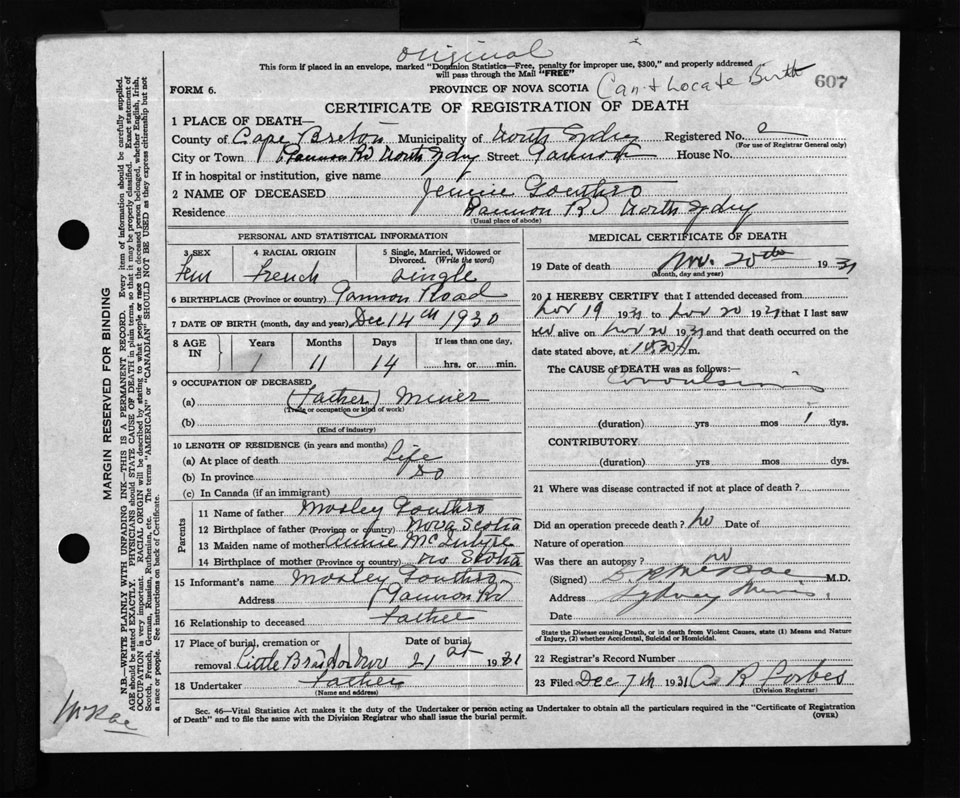 original
This form if placed in an envelope, marked "Dominion Statistics—Free, penalty for improper use, $300," and properly addressed
will pass through the Mail "FREE"
FORM 6.
PROVINCE OF NOVA SCOTIA
Can't Locate Birth
607
CERTIFICATE OF REGISTRATION OF DEATH
1 PLACE OF DEATH—
County of Cape Breton Municipality of North Sydney Registered No.
(For use of Registrar General only)
City or Town Gannon Rd North Sydney Street Gannon House No.
If in hospital or institution, give name
2 NAME OF DECEASED Jennie Gouthro
Residence Gannon Rd North Sydney
(Usual place of abode)
PERSONAL AND STATISTICAL INFORMATION
3 SEX 4 RACIAL ORIGIN 5 Single, Married, Widowed or Divorced. (Write the word)
fem french single
6 BIRTHPLACE (Province or country) Gannon Road
7 DATE OF BIRTH (month, day and year) Dec 14th 1930
8 AGE IN Years Months Days If less than one day,
1 11 14 hrs. or min.
9 OCCUPATION OF DECEASED
(a) (Father) Miner
(Trade or occupation or kind of work)
(b)
(Kind of industry)
10 LENGTH OF RESIDENCE (in years and months)
(a) At place of death Life
(b) In province Do
(c) In Canada (if an immigrant)
Parents
11 Name of father Mosley Gouthro
12 Birthplace of father (Province or country) Nova Scotia
13 Maiden name of mother Annie McIntyre
14 Birthplace of mother (Province or country) Scotia
15 Informant's name Mosley Gouthro
Address Gannon Rd
16 Relationship to deceased Father
17 Place of burial, cremation or removal Little Bras d'or Date of burial Nov 21st 1931
18 Undertaker Father
(Name and address)
MEDICAL CERTIFICATE OF DEATH
19 Date of death Nov. 20th 1931
(Month, day and year)
20 I HEREBY CERTIFY that I attended deceased from
Nov 19 1931 to Nov 20 1931 that I last saw
her alive on Nov 20 1931 and that death occurred on the
date stated above, at 10.30 A m.
The CAUSE of DEATH was as follows:—
Convulsions
(duration) yrs mos 1 dys.
CONTRIBUTORY
(duration) yrs mos dys.
21 Where was disease contracted if not at place of death?
Did an operation precede death? no Date of
Nature of operation
Was there an autopsy? no
(Signed) McRae M.D.
Address Sydney Mines.
Date
State the Disease causing Death, or in death from Violent Causes, state (1) Means and Nature
of Injury, (2) whether Accidental, Suicidal or Homicidal.
22 Registrar's Record Number
23 Filed Dec 7th 1931 A R Forbes
(Division Registrar)
Sec. 46—Vital Statistics Act makes it the duty of the Undertaker or person acting as Undertaker to obtain all the particulars required in the "Certificate of Registration
of Death" and to file the same with the Division Registrar who shall issue the burial permit.
(OVER)
MARGIN RESERVED FOR BINDING
N.B.—WRITE PLAINLY WITH UNFADING INK—THIS IS A PERMANENT RECORD. Every item of information should be carefully supplied.
AGE should be stated EXACTLY. PHYSICIANS should STATE CAUSE OF DEATH in plain terms, so that it may be properly classified. Exact statement of
OCCUPATION is very important. RACIAL ORIGIN will be described by stating to what people or race the deceased person belonged, whether English, Irish,
Scotch, French, German, Russian, Ruthenian, etc. The terms "AMERICAN" or "CANADIAN" SHOULD NOT BE USED as they express citizenship but not
a race or people. See instructions on back of Certificate.
McRae